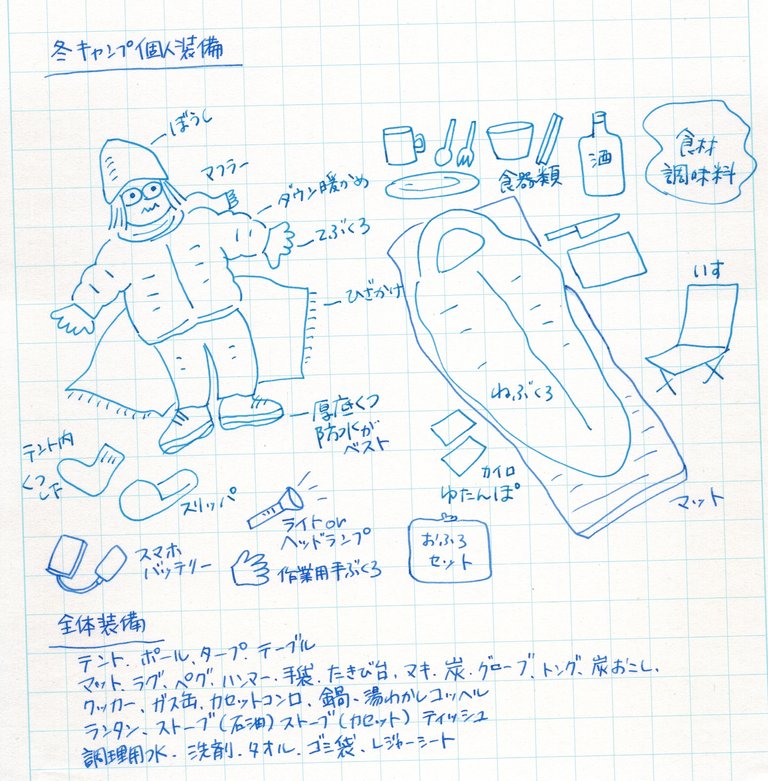 冬キャンプ個人装備
ぼうし
マフラー
ダウン暖かめ
てぶくろ
ひざかけ
厚底くつ
防水が
ベスト
食器類
酒
食材
調味料
いす
ねぶくろ
マット
カイロ
ゆたんぽ
おふろ
セット
テント内
くつ
下
スリッパ
ライトor
ヘッドランプ
スマホ
バッテリー
作業用手ぶくろ
全体装備
テント、ポール、タープ、テーブル
マット、ラグ、ペグ、ハンマー、手袋、たきび台、マキ、炭、グローブ、トング、炭おこし、
クッカー、ガス缶、カセットコンロ、鍋、湯わかしコッヘル
ランタン、ストーブ(石油)ストーブ(カセット)ティッシュ
調理用水、洗剤、タオル、ゴミ袋、レジャーシート